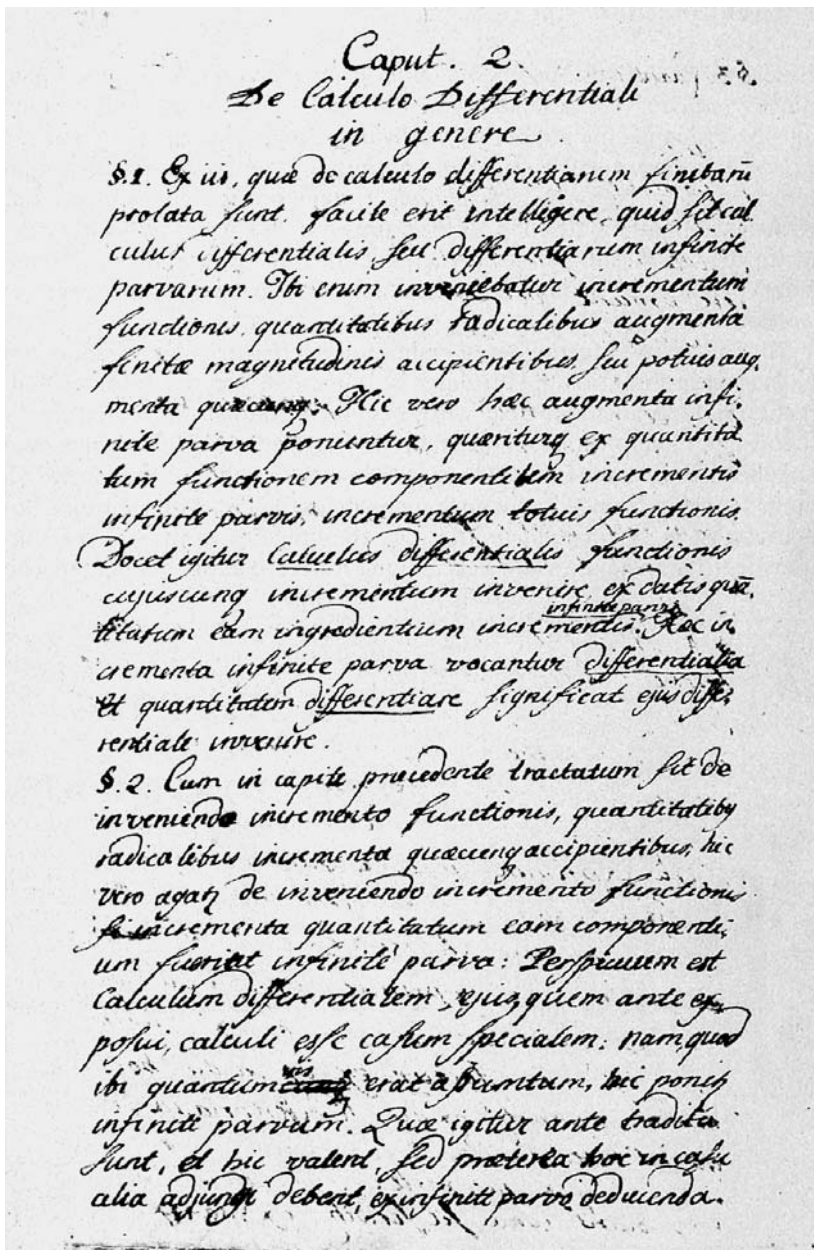 Caput. 2.
De Calculo Differentiali
in genere
§.1. Ex iis, quæ de calculo differentiarum finitarū
prolata sunt, facile erit intelligere, quid sit cal
culus differentialis, seu differentiarum infinite
parvarum. Ibi enim inveniebatur incrementum
functionis, quantitatibus radicalibus augmenta
finitæ magnitudinis accipientibus, seu potius aug-
menta quæcunq; Hic vero hæc augmenta infi-
nite parva ponuntur, quæriturq ex quantita
tum functionem componentium incrementis
infinite parvis, incrementum totius functionis.
Docet igitur Calculus differentialis functionis
cujuscunq incrementum invenire, ex datis quā-
infinite parvis
titatum eam ingredientium incrementis. Hæc in-
crementa infinite parva vocantur differentialia
Et quantitatem differentiare significat ejus diffe-
rentiale invenire.
§.2. Cum in capite præcedente tractatum sit de
inveniendo incremento functionis, quantitatibꝫ
radicalibus incrementa quæcunq accipientibus, hic
vero agatꝫ de inveniendo incremento functionis
si incrementa quantitatum eam componenti-
um fuerint infinite parva: Perspicuum est
Calculum differentialem, ejus, quem ante ex-
posui, calculi esse casum specialem; nam quod
ibi quantumvis erat assumtum, hic ponitꝫ
infinite parvum. Quæ igitur ante tradita
sunt, et hic valent, sed præterea hoc in casu
alia adjungi debent, ex infinite parvo deducenda.